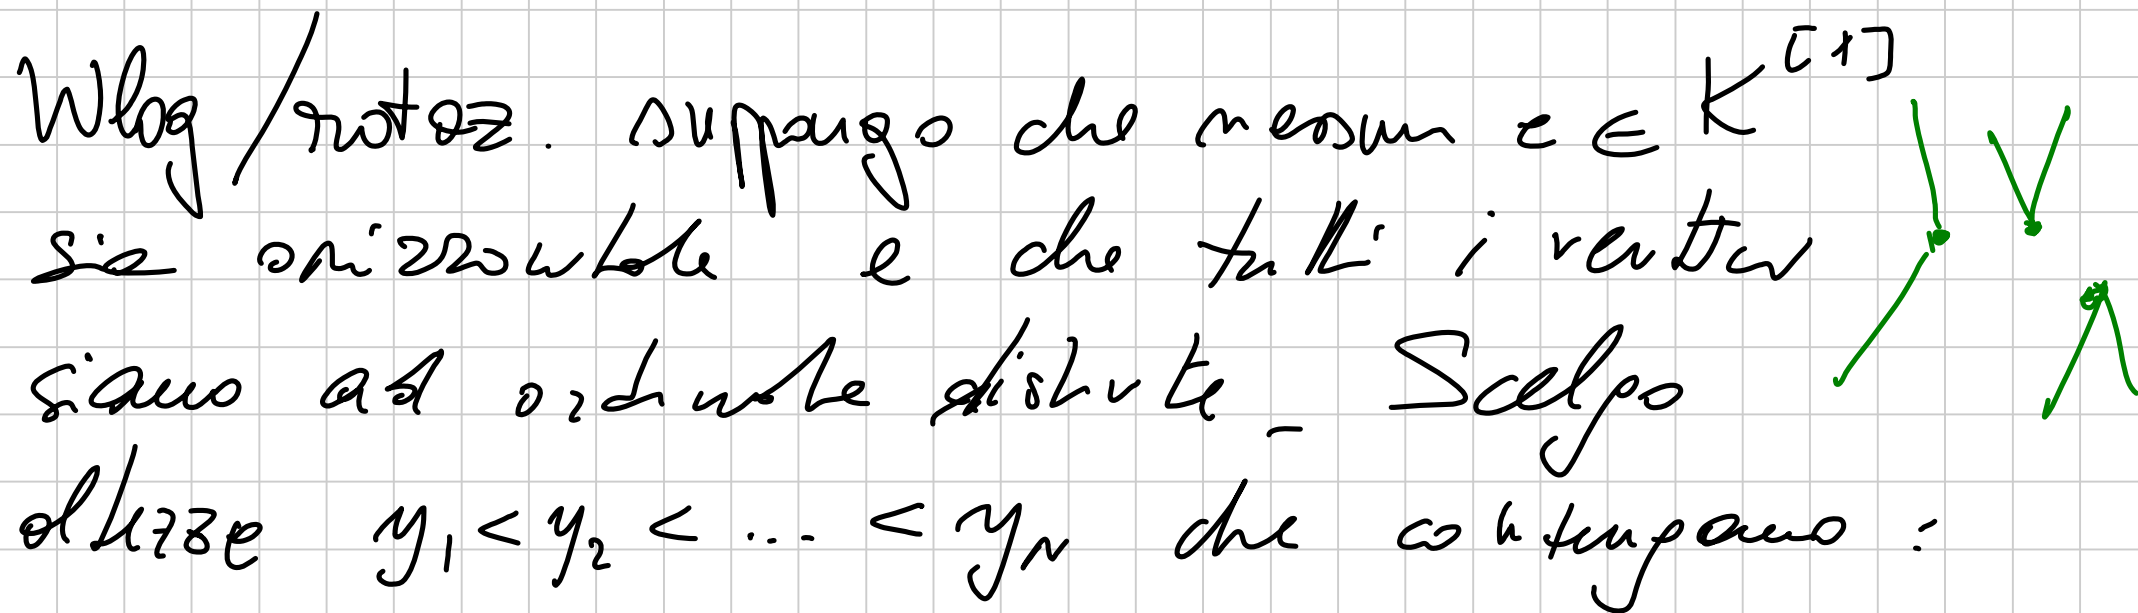 Wlog/rotaz. suppongo che nessun e ∈ K^[1]
sia orizzontale e che tutti i vertici
siano ad ordinate distinte. Scelgo
altezze y₁ < y₂ < ... < y_N che contengano :